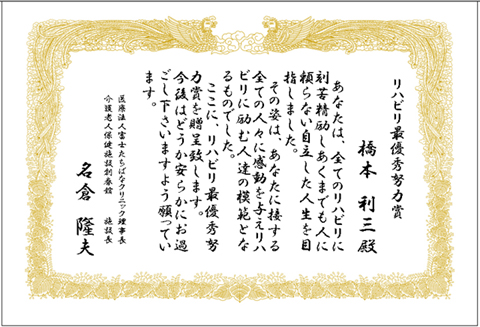 リハビリ最優秀努力賞
橋本 利三 殿
あなたは、全てのリハビリに
刻苦精励しあくまでも人に
頼らない自立した人生を目
指しました。
その姿は、あなたに接する
全ての人々に感動を与えリハ
ビリに励む人達の模範とな
るものでした。
ここに、リハビリ最優秀努
力賞を贈呈致します。
今後はどうか安らかにお過
ごし下さいますよう願ってい
ます。
医療法人富士たちばなクリニック理事長
介護老人保健施設創春館 施設長
名倉 隆夫